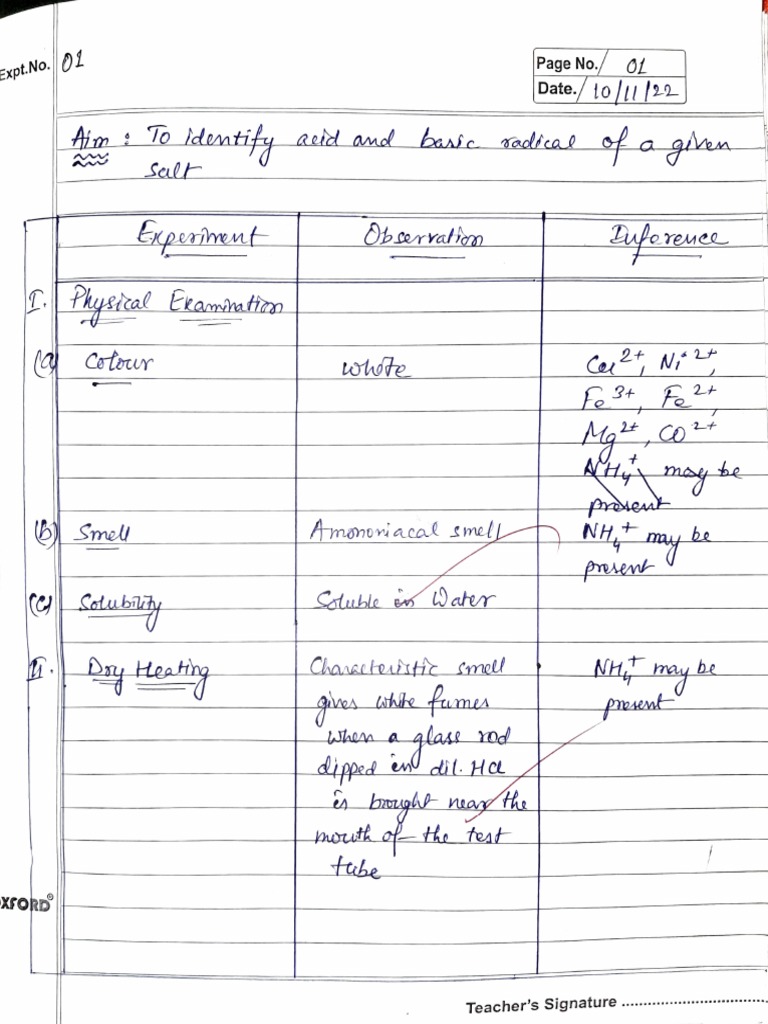 Expt.No. 01
Page No. 01
Date. 10/11/22
Aim : To identify acid and basic radical of a given
salt
Experiment Observation Inference
I. Physical Examination
(a) Colour white Cu2+, Ni2+,
Fe3+, Fe2+,
Mg2+, CO2+
NH4+ may be
present
(b) Smell Amononiacal smell NH4+ may be
present
(c) Solubility Soluble in Water
II. Dry Heating Characteristic smell NH4+ may be
gives white fumes present
when a glass rod
dipped in dil. HCl
is brought near the
mouth of the test
tube
OXFORD®
Teacher's Signature